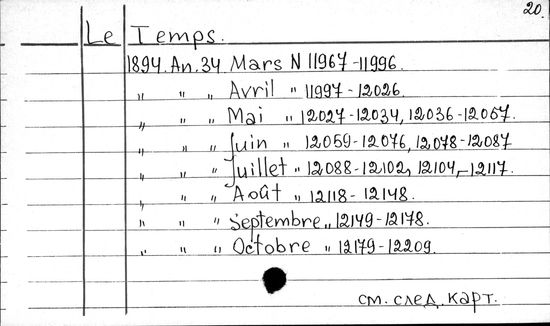 20.
Le Temps.
1894. An. 34 Mars N 11967-11996.
" " " Avril " 11997-12026.
" " " Mai " 12027-12034, 12036-12057.
" " " Juin " 12059-12076, 12078-12087
" " " Juillet " 12088-12102, 12104-12117.
" " " Août " 12118-12148.
" " " Septembre " 12149-12178.
" " " Octobre " 12179-12209.
см. след. карт.